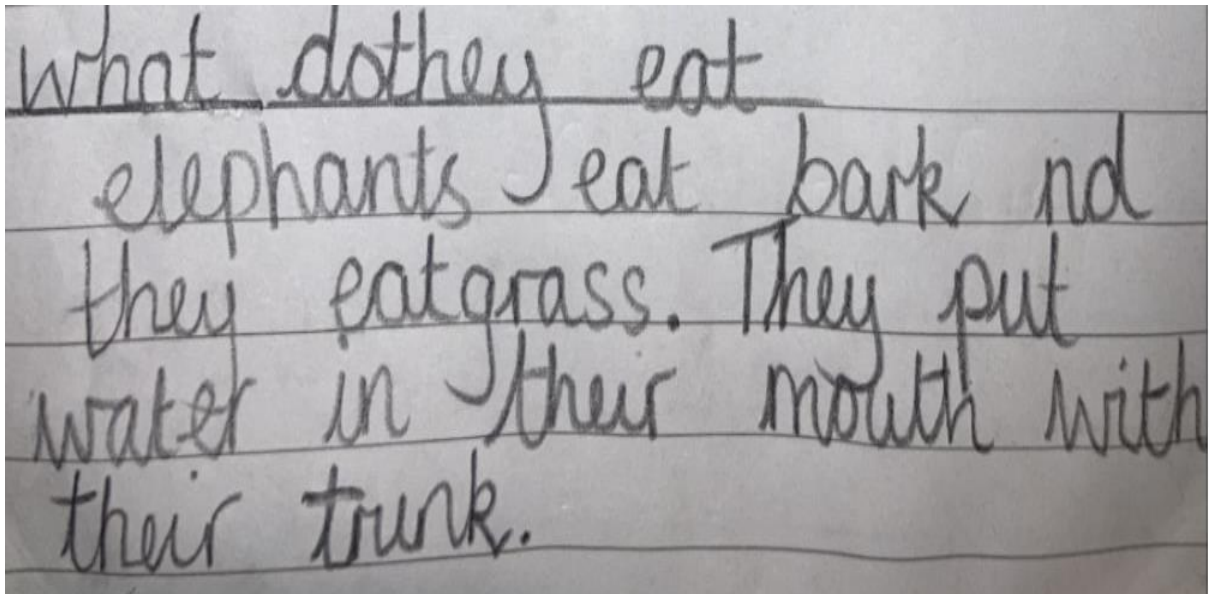 what dothey eat
elephants eat bark nd
they eatgrass. They put
water in their mouth with
their trunk.